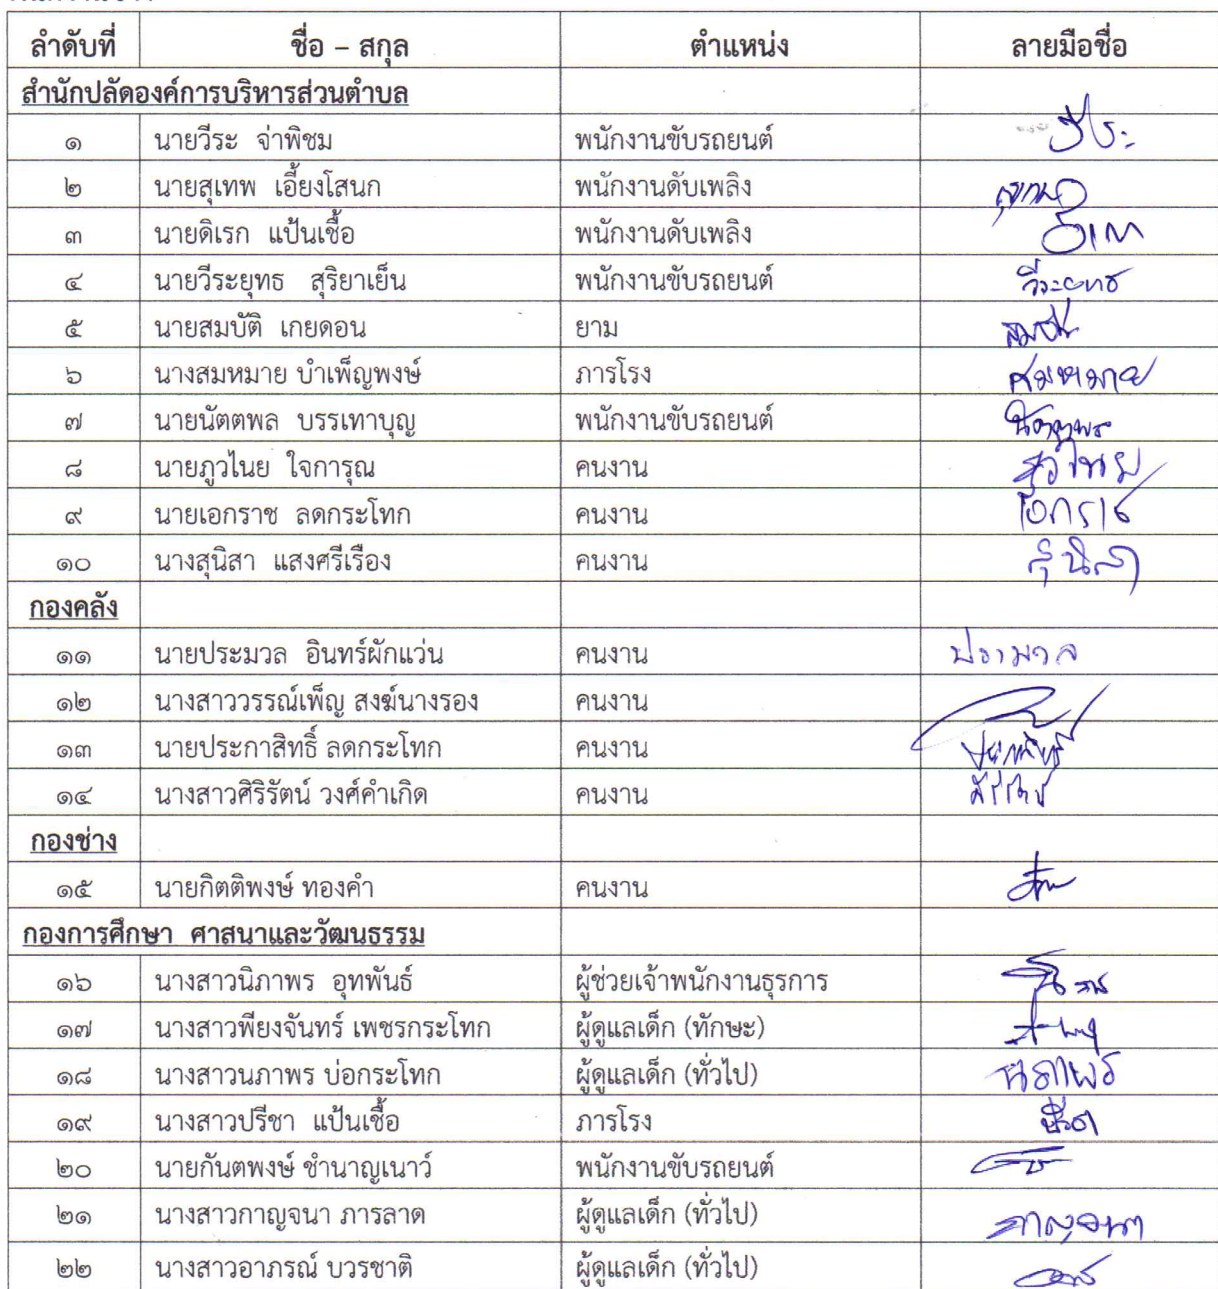 ลำดับที่ ชื่อ – สกุล ตำแหน่ง ลายมือชื่อ
สำนักปลัดองค์การบริหารส่วนตำบล
๑ นายวีระ จ่าพิชม พนักงานขับรถยนต์ วีระ
๒ นายสุเทพ เอี้ยงโสนก พนักงานดับเพลิง
๓ นายดิเรก แป้นเชื้อ พนักงานดับเพลิง
๔ นายวีระยุทธ สุริยาเย็น พนักงานขับรถยนต์ วีระยุทธ
๕ นายสมบัติ เกยดอน ยาม
๖ นางสมหมาย บำเพ็ญพงษ์ ภารโรง สมหมาย
๗ นายนัตตพล บรรเทาบุญ พนักงานขับรถยนต์
๘ นายภูวไนย ใจการุณ คนงาน ภูวไนย
๙ นายเอกราช ลดกระโทก คนงาน เอกราช
๑๐ นางสุนิสา แสงศรีเรือง คนงาน สุนิสา
กองคลัง
๑๑ นายประมวล อินทร์ผักแว่น คนงาน ประมวล
๑๒ นางสาววรรณ์เพ็ญ สงฆ์นางรอง คนงาน
๑๓ นายประกาสิทธิ์ ลดกระโทก คนงาน
๑๔ นางสาวศิริรัตน์ วงศ์คำเกิด คนงาน ศิริรัตน์
กองช่าง
๑๕ นายกิตติพงษ์ ทองคำ คนงาน
กองการศึกษา ศาสนาและวัฒนธรรม
๑๖ นางสาวนิภาพร อุทพันธ์ ผู้ช่วยเจ้าพนักงานธุรการ
๑๗ นางสาวพียงจันทร์ เพชรกระโทก ผู้ดูแลเด็ก (ทักษะ)
๑๘ นางสาวนภาพร บ่อกระโทก ผู้ดูแลเด็ก (ทั่วไป) นภาพร
๑๙ นางสาวปรีชา แป้นเชื้อ ภารโรง
๒๐ นายกันตพงษ์ ชำนาญเนาว์ พนักงานขับรถยนต์
๒๑ นางสาวกาญจนา ภารลาด ผู้ดูแลเด็ก (ทั่วไป) กาญจนา
๒๒ นางสาวอาภรณ์ บวรชาติ ผู้ดูแลเด็ก (ทั่วไป)